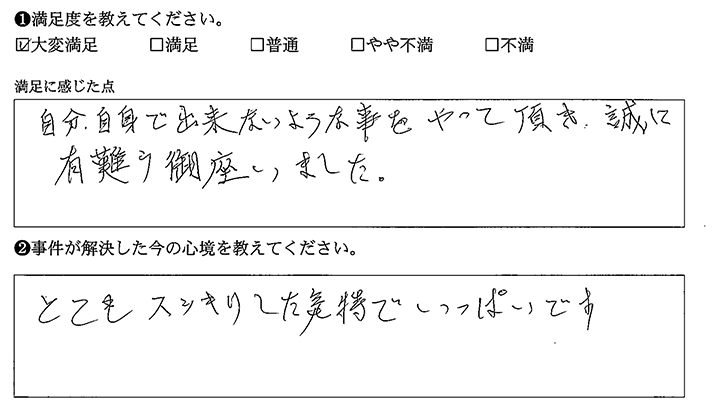 ❶満足度を教えてください。
☑大変満足 □満足 □普通 □やや不満 □不満
満足に感じた点
自分自身で出来ないような事をやって頂き、誠に
有難う御座いました。
❷事件が解決した今の心境を教えてください。
とてもスッキリした気持でいっぱいです